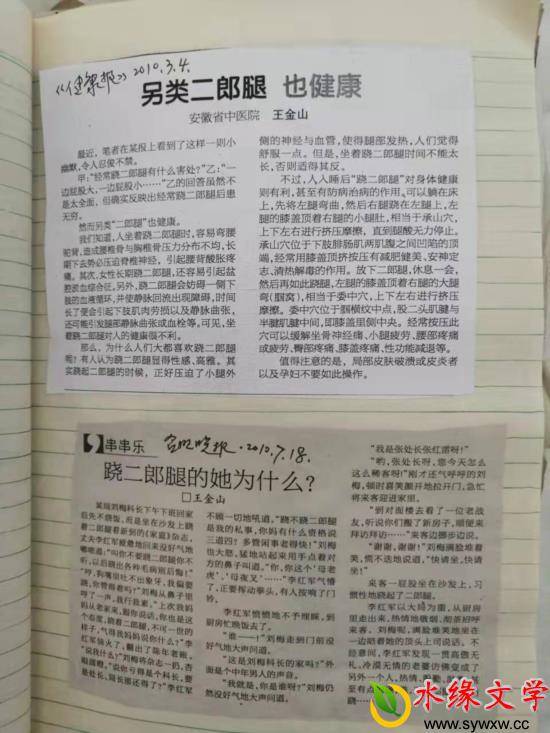 《健康报》2010.3.4.
另类二郎腿 也健康
安徽省中医院 王金山
最近，笔者在某报上看到了这样一则小
幽默，令人忍俊不禁。
甲：“经常跷二郎腿有什么害处？”乙：“一
边屁股大，一边屁股小……”乙的回答虽然不
是太全面，但确实反映出经常跷二郎腿后患
无穷。
然而另类“二郎腿”也健康。
我们知道，人坐着跷二郎腿时，容易弯腰
驼背，造成腰椎骨与胸椎骨压力分布不均，长
期下去势必压迫脊椎神经，引起腰背酸胀疼
痛。其次，女性长期跷二郎腿，还容易引起盆
腔淤血综合征。另外，跷二郎腿会妨碍一侧下
肢的血液循环，并使静脉回流出现障碍，时间
长了便会引起下肢肌肉劳损以及静脉曲张，
还可能引发腿部静脉曲张或血栓等。可见，坐
着跷二郎腿对人的健康很不利。
那么，为什么人们大都喜欢跷二郎腿
呢？有人认为跷二郎腿显得性感、高雅。其
实跷起二郎腿的时候，正好压迫了小腿外
侧的神经与血管，使得腿部发热，人们觉得
舒服一点。但是，坐着跷二郎腿时间不能太
长，否则适得其反。
不过，人入睡后“跷二郎腿”对身体健康
则有利，甚至有防病治病的作用。可以躺在床
上，先将左腿弯曲，然后右腿跷在左腿上，左
腿的膝盖顶着右腿的小腿肚，相当于承山穴，
上下左右进行挤压摩擦，直到腿酸无力停止。
承山穴位于下肢腓肠肌两肌腹之间凹陷的顶
端，经常用膝盖顶挤按压有减肥健美、安神定
志、清热解毒的作用。放下二郎腿，休息一会，
然后再如此跷腿，左腿的膝盖顶着右腿的大腿
弯（腘窝），相当于委中穴，上下左右进行挤压
摩擦。委中穴位于腘横纹中点，股二头肌腱与
半腱肌腱中间，即膝盖里侧中央。经常按压此
穴可以缓解坐骨神经痛、小腿疲劳、腰部疼痛
或疲劳、臀部疼痛、膝盖疼痛、性功能减退等。
值得注意的是，局部皮肤破溃或皮炎者
以及孕妇不要如此操作。
串串乐
合肥晚报·2010.7.18.
跷二郎腿的她为什么？
□王金山
某局刘梅科长下午下班回家
后先不烧饭，而是坐在沙发上跷
着二郎腿看新到的《家庭》杂志，
丈夫李红军疲惫地回来没好气地
嘟囔道：“叫你不要跷二郎腿你不
听，以后跷出各种毛病别后悔！”
“哼，狗嘴里吐不出象牙，我偏要
跷，你管得着吗？”刘梅从鼻子里
哼了一声，我行我素。“上次我妈
妈从老家来，跟你说话，你也是这
个态度，跷着二郎腿，不可一世的
样子，气得我妈妈说你什么？”李
红军恼火了，翻出了陈年老账。
“说我什么？”刘梅将杂志一扔，杏
眼圆瞪。“说你亏得是个科长，要
是处长、局长那还得了？”李红军
不顾一切地吼道。“跷不跷二郎腿
是我的私事，你妈有什么资格说
三道四？多管闲事老得快！”刘梅
也大怒，猛地站起来用手点着对
方的鼻子叫道。“你，你这个‘母老
虎’、‘母夜叉’……”李红军气懵
了，正要挥动拳头，有人按响了门
铃。
李红军愤愤地不予理睬，到
厨房忙晚饭去了。
“谁——！”刘梅走到门前没
好气地大声问道。
“这是刘梅科长的家吗？”外
面是个中年男人的声音。
“我就是，你是谁呀？”刘梅仍
然没好气地大声问道。
“我是张处长张红雷呀！”
“哟，张处长呀，您今天怎么
这么稀客呀！”刚才还气呼呼的刘
梅，顿时喜笑颜开地拉开门，急忙
将来客迎进家里。
“到对面楼去看了一位老战
友，听说你们搬了新房子，顺便来
拜访拜访……”来客边挪步边说。
“谢谢，谢谢！”刘梅满脸堆着
笑，慌不迭地说道，“快请坐，快请
坐！”
来客一屁股坐在沙发上，习
惯性地跷起了二郎腿。
李红军以大局为重，从厨房
里走出来，热情地敬烟、彻茶招呼
来客。刘梅呢，满脸堆笑地坐在
一边听着她的顶头上司说话。不
经意间，李红军发现一贯高傲无
礼、冷漠无情的老婆仿佛变成了
另外一个人，热情、
至有点
水缘文学
www.sywxw.cn